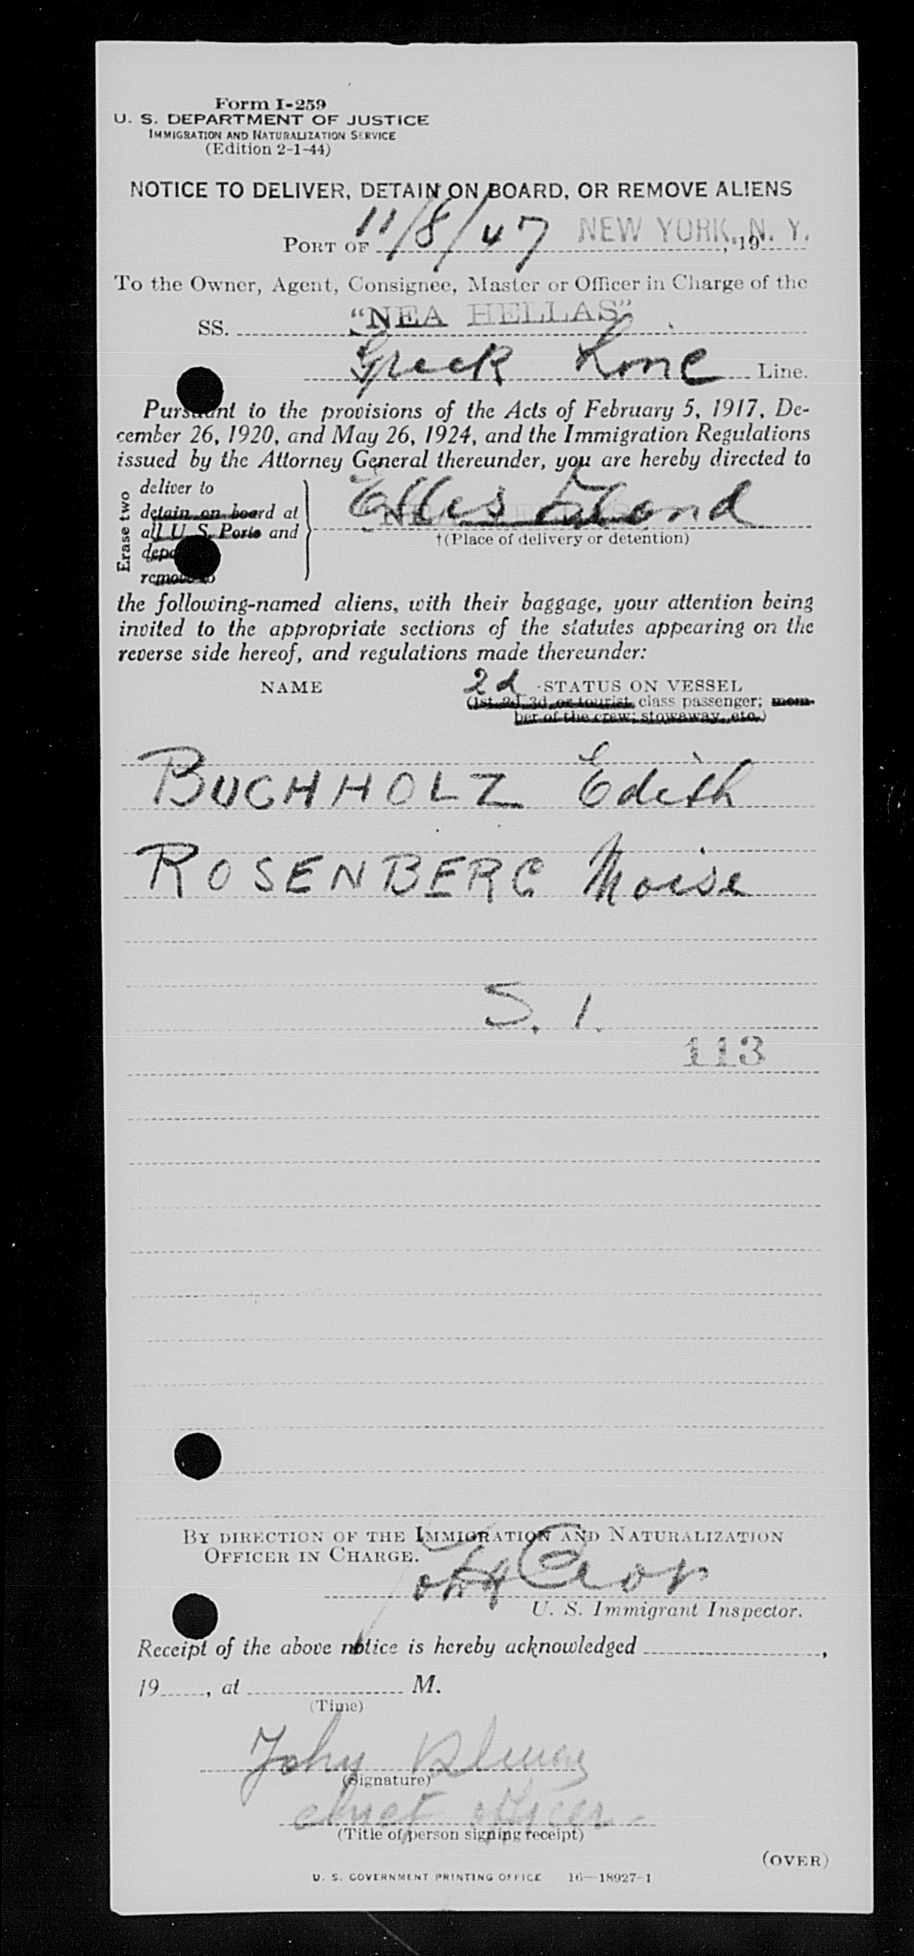 Form I-259
U. S. DEPARTMENT OF JUSTICE
IMMIGRATION AND NATURALIZATION SERVICE
(Edition 2-1-44)
NOTICE TO DELIVER, DETAIN ON BOARD, OR REMOVE ALIENS
PORT OF 11/8/47 NEW YORK, N. Y., 19
To the Owner, Agent, Consignee, Master or Officer in Charge of the
SS. "NEA HELLAS"
Greek Line Line.
Pursuant to the provisions of the Acts of February 5, 1917, De-
cember 26, 1920, and May 26, 1924, and the Immigration Regulations
issued by the Attorney General thereunder, you are hereby directed to
Erase two
deliver to
detain on board at
all U. S. Ports and
remove to
Ellis Island
†(Place of delivery or detention)
the following-named aliens, with their baggage, your attention being
invited to the appropriate sections of the statutes appearing on the
reverse side hereof, and regulations made thereunder:
NAME 2d STATUS ON VESSEL
(1st, 2d, 3d, or tourist class passenger; mem-
ber of the crew; stowaway, etc.)
BUCHHOLZ Edith
ROSENBERG Moise
S. I.
113
BY DIRECTION OF THE IMMIGRATION AND NATURALIZATION
OFFICER IN CHARGE.
U. S. Immigrant Inspector.
Receipt of the above notice is hereby acknowledged ,
19 , at M.
(Time)
John
(Signature)
chief officer
(Title of person signing receipt)
(OVER)
U. S. GOVERNMENT PRINTING OFFICE 16—18927-1